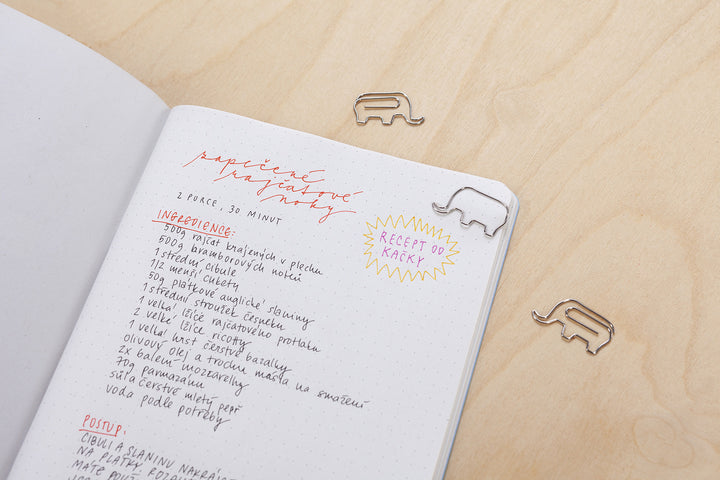 zapečené
rajčatové
noky
2 PORCE, 30 MINUT
RECEPT OD
KAČKY
INGREDIENCE:
500g rajčat krájených v plechu
500g bramborových noků
1 střední cibule
1/2 menší cukety
50g plátkové anglické slaniny
1 střední stroužek česneku
1 velká lžíce rajčatového protlaku
2 velké lžíce ricotty
1 velká hrst čerstvé bazalky
olivový olej a trochu másla na smažení
2x balení mozzarelly
70g parmazánu
sůl a čerstvě mletý pepř
voda podle potřeby
POSTUP:
CIBULI A SLANINU
NA PLÁTKY,
MÁTE